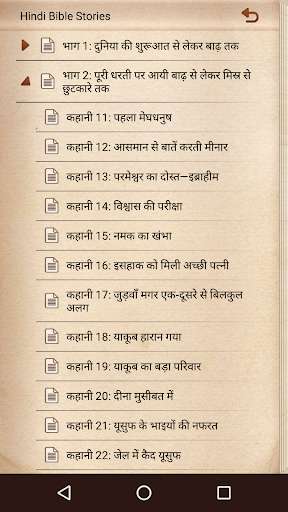 Hindi Bible Stories
भाग 1: दुनिया की शुरूआत से लेकर बाढ़ तक
भाग 2: पूरी धरती पर आयी बाढ़ से लेकर मिस्र से
छुटकारे तक
कहानी 11: पहला मेघधनुष
कहानी 12: आसमान से बातें करती मीनार
कहानी 13: परमेश्वर का दोस्त—इब्राहीम
कहानी 14: विश्वास की परीक्षा
कहानी 15: नमक का खंभा
कहानी 16: इसहाक को मिली अच्छी पत्नी
कहानी 17: जुड़वाँ मगर एक-दूसरे से बिलकुल
अलग
कहानी 18: याकूब हारान गया
कहानी 19: याकूब का बड़ा परिवार
कहानी 20: दीना मुसीबत में
कहानी 21: यूसुफ के भाइयों की नफरत
कहानी 22: जेल में कैद यूसुफ